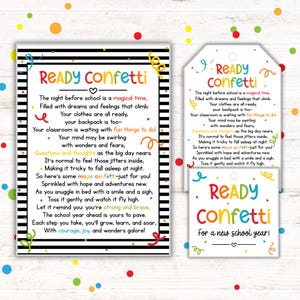 READY CONFETTI
The night before school is a magical time,
Filled with dreams and feelings that climb.
Your clothes are all ready,
your backpack is too-
Your classroom is waiting with fun things to do!
Your mind may be swirling
with wonders and fears,
Questions and thoughts as the big day nears.
It's normal to feel those jitters inside,
Making it tricky to fall asleep at night.
So here's some magic confetti-just for you!
Sprinkled with hope and adventures new.
As you snuggle in bed with a smile and a sigh,
Toss it gently and watch it fly high.
Let it remind you you're strong and brave,
The school year ahead is yours to pave.
Each step you take, you'll grow, learn, and soar
With courage, joy, and wonders galore!
READY
CONFETTI
The night before school is a magical time,
Filled with dreams and feelings that climb.
Your clothes are all ready,
your backpack is too-
Your classroom is waiting with fun things to do!
Your mind may be swirling
with wonders and fears,
Questions and thoughts as the big day nears.
It's normal to feel those jitters inside,
Making it tricky to fall asleep at night.
So here's some magic confetti-just for you!
Sprinkled with hope and adventures new.
As you snuggle in bed with a smile and a sigh,
Toss it gently and watch it fly high.
READY
CONFETTI
for a new school year!